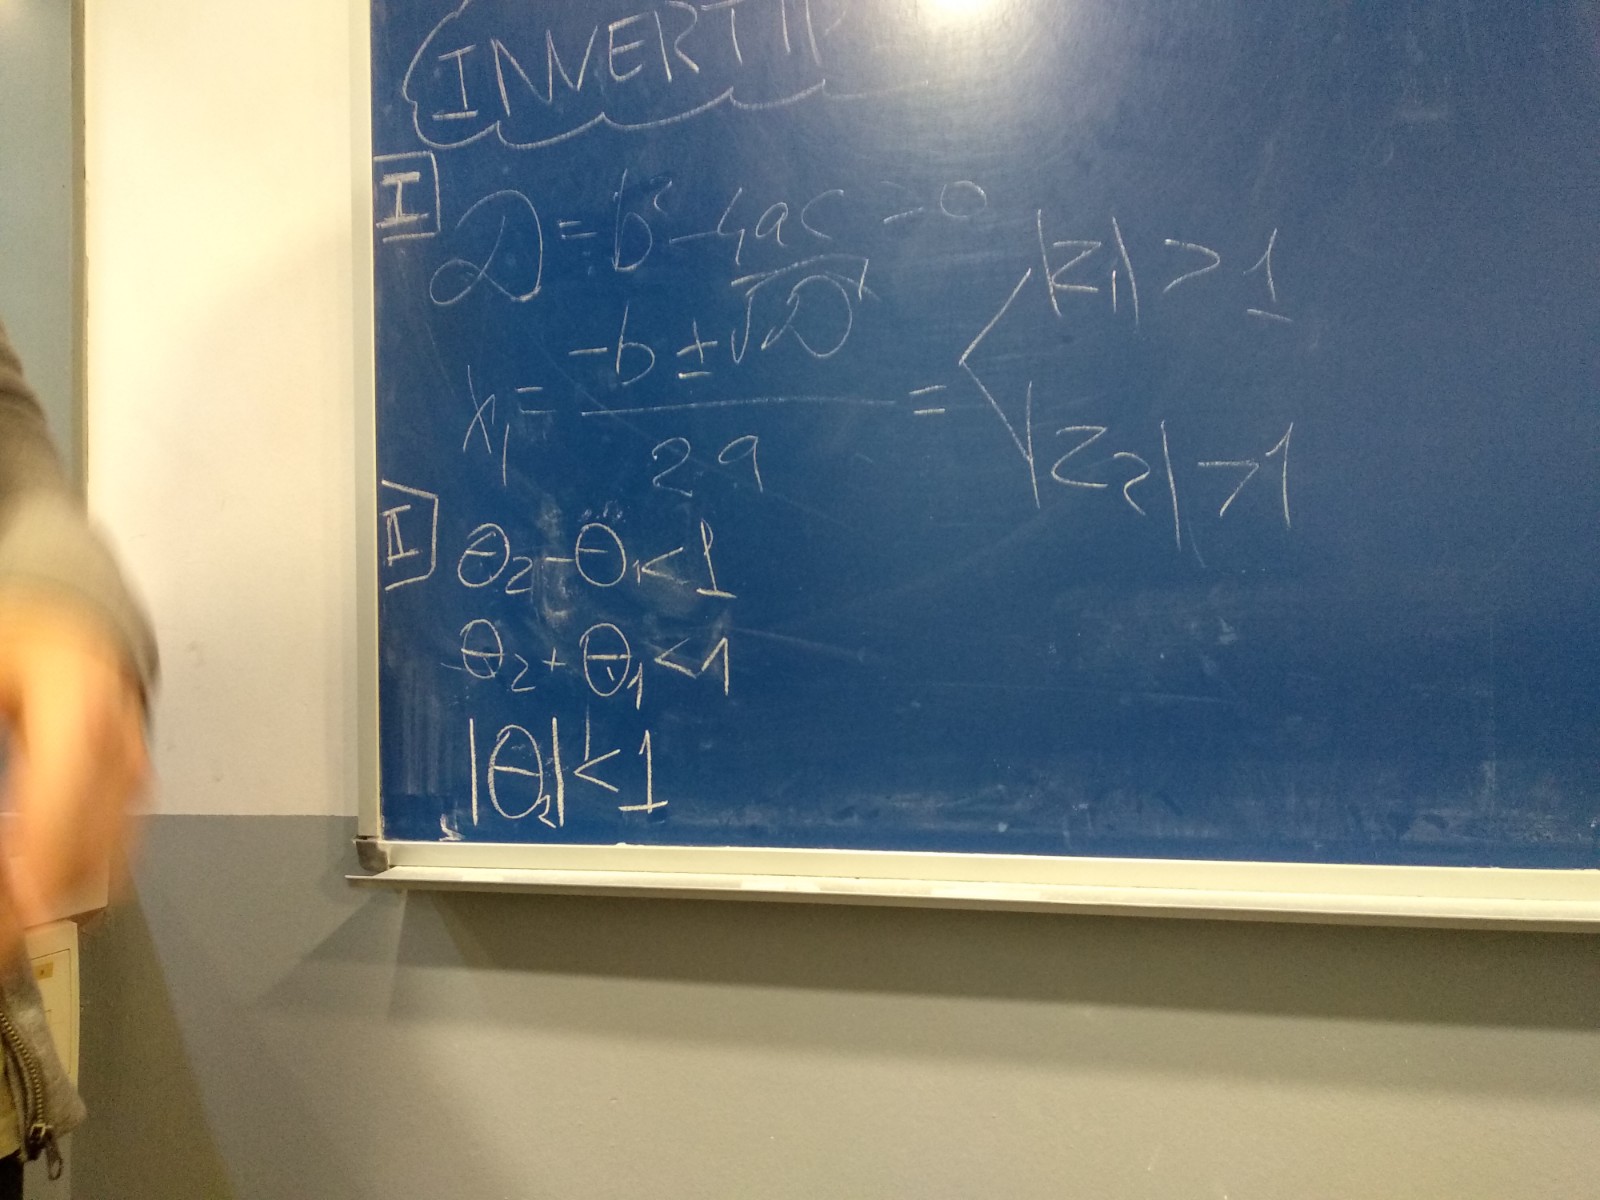 INVERTI
I
D = b² - 4ac = 0
x₁ = (-b ± √D) / 2a = |z₁| > 1
|z₂| > 1
II
θ₂ - θ₁ < 1
θ₂ + θ₁ < 1
|θ₂| < 1